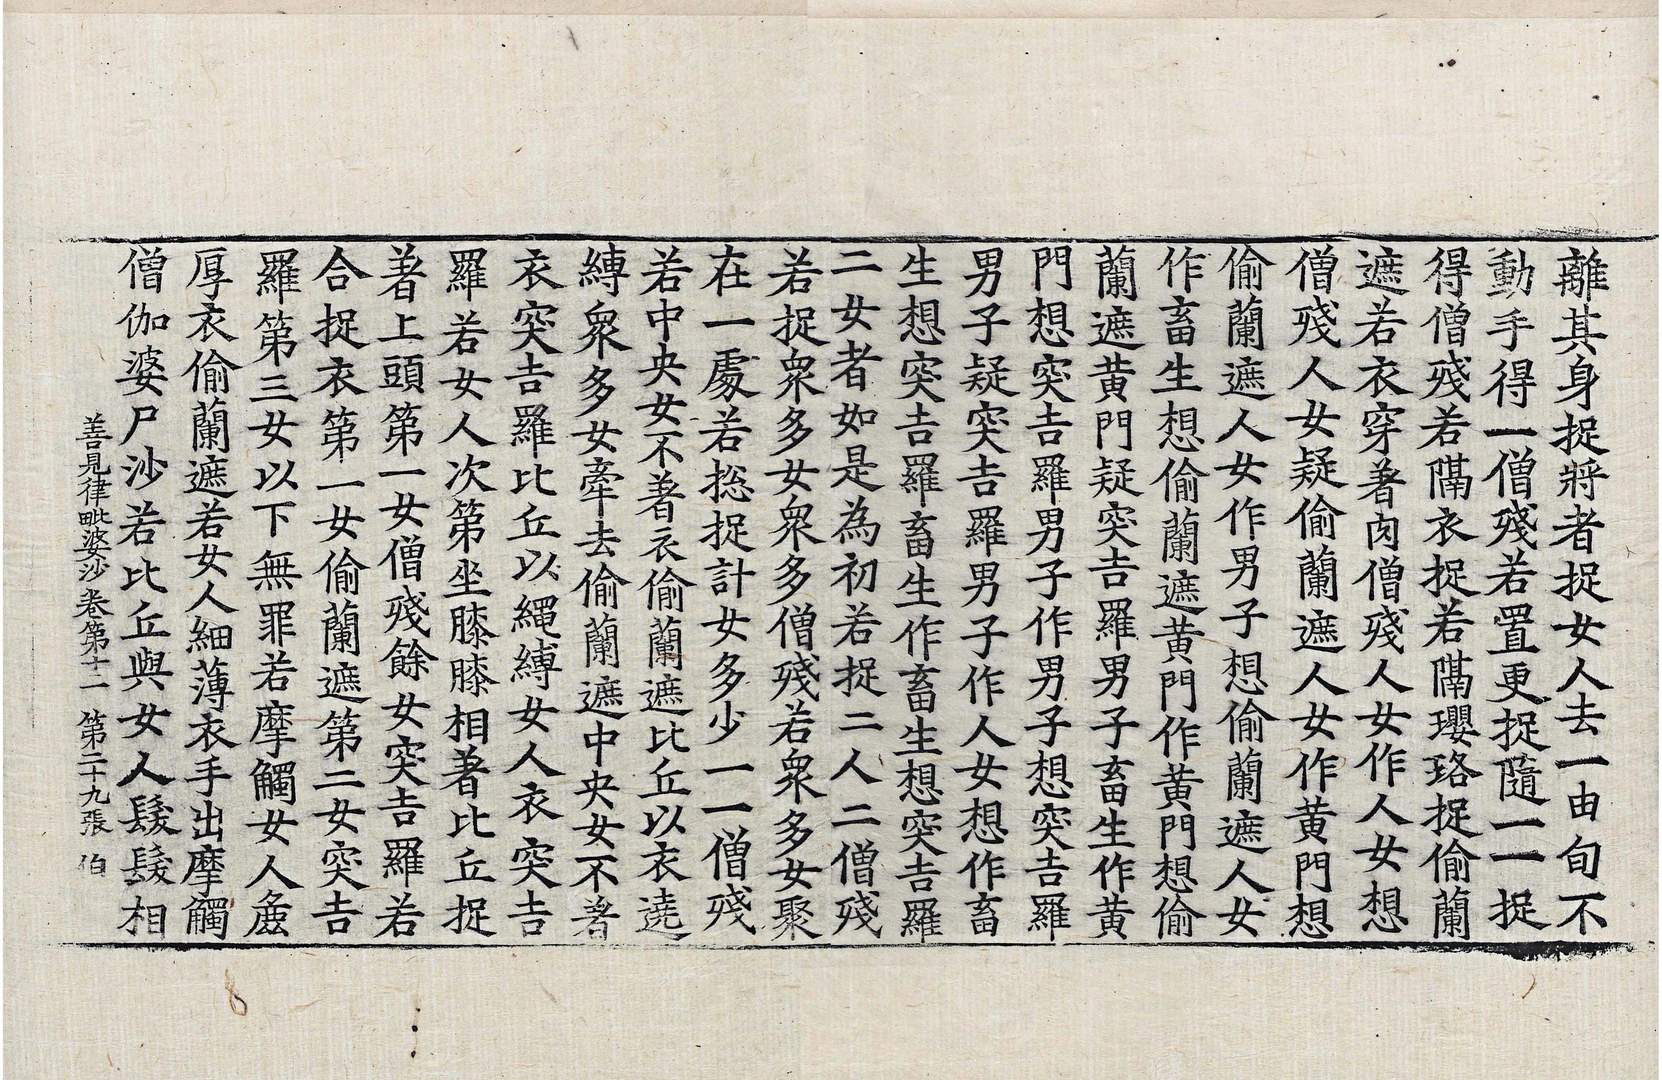 離其身捉將者捉女人去一由旬不
動手得一僧殘若置更捉隨一一捉
得僧殘若隔衣捉若隔瓔珞捉偷蘭
遮若衣穿著肉僧殘人女作人女想
僧殘人女疑偷蘭遮人女作黃門想
偷蘭遮人女作男子想偷蘭遮人女
作畜生想偷蘭遮黃門作黃門想偷
蘭遮黃門疑突吉羅男子畜生作黃
門想突吉羅男子作男子想突吉羅
男子疑突吉羅男子作人女想作畜
生想突吉羅畜生作畜生想突吉羅
二女者如是為初若捉二人二僧殘
若捉衆多女衆多僧殘若衆多女聚
在一處若捴捉計女多少一一僧殘
若中央女不著衣偷蘭遮比丘以衣遶
縛衆多女牽去偷蘭遮中央女不著
衣突吉羅比丘以繩縛女人衣突吉
羅若女人次第坐膝膝相著比丘捉
著上頭第一女僧殘餘女突吉羅若
合捉衣第一女偷蘭遮第二女突吉
羅第三女以下無罪若摩觸女人麁
厚衣偷蘭遮若女人細薄衣手出摩觸
僧伽婆尸沙若比丘與女人髮髮相
善見律毗婆沙卷第十二 第二十九張 伯